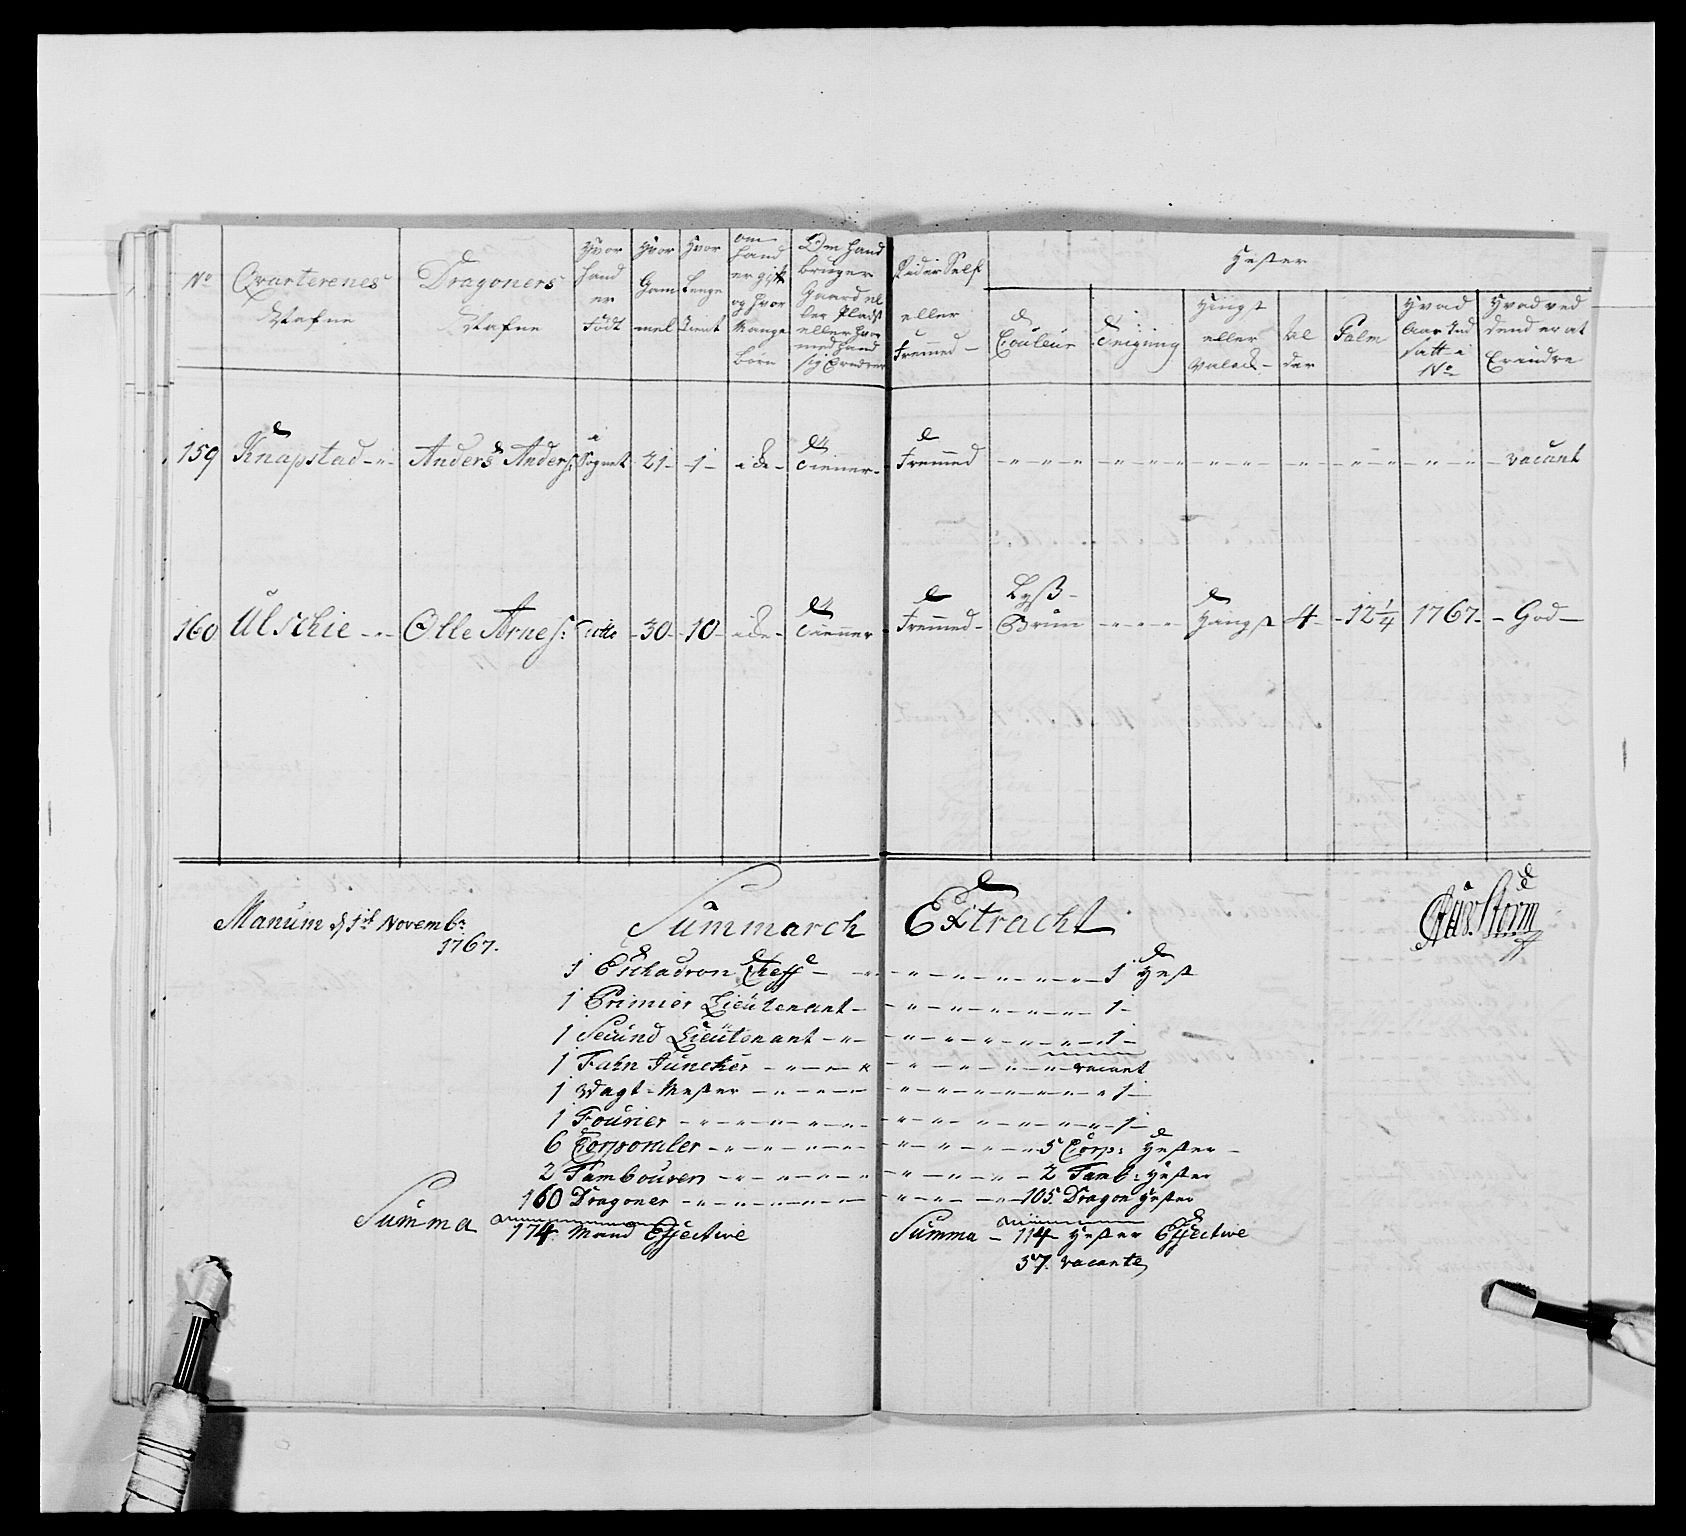 No
Qvarterenes
Nafne
Dragoners
Nafne
Hvor
hand
er
Födt
Hvor
Gam
mel
Hvor
Lenge
Tient
om
hand
er gift
og hvor
Mange
börn
Om hand
bruger
Gaard el
ler Plads
eller hvor
med hand
sig Ernærer
Rider Self
eller
Fremmed
Hester
Couleur
Teigning
Hingst
eller
Valack
Al
der
Palm
Hvad
Aar Ind
satt i
No
Hvad ved
dend er at
Erindre
159 Knapstad Anders Anders: Sognet 21 1 Tiener Fremmed vacant
160 Ulschie Olle Arnes: Ditto 30 10 Tienner Fremmed Lyß Brun Hingst 4 12 1/4 1767 God
Manum d 1st Novembr
1767.
Summarch Extracht
1 Eschadron Cheff 1 Hest
1 Primier Lieutenant 1
1 Secund Lieutenant 1
1 Fahn Juncker vacant
1 Wagt Mester 1
1 Fourier 1
6 Corporaler 5 Corp: Hester
2 Tambourer 2 Tamb: Hester
160 Dragoner 105 Dragon Hester
Summa 174 Mand Effective Summa 114 Hester Effective
57. vacante